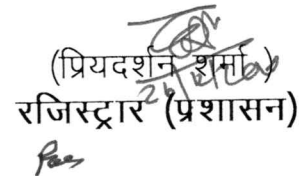 (प्रियदर्शन शर्मा )
रजिस्ट्रार (प्रशासन)